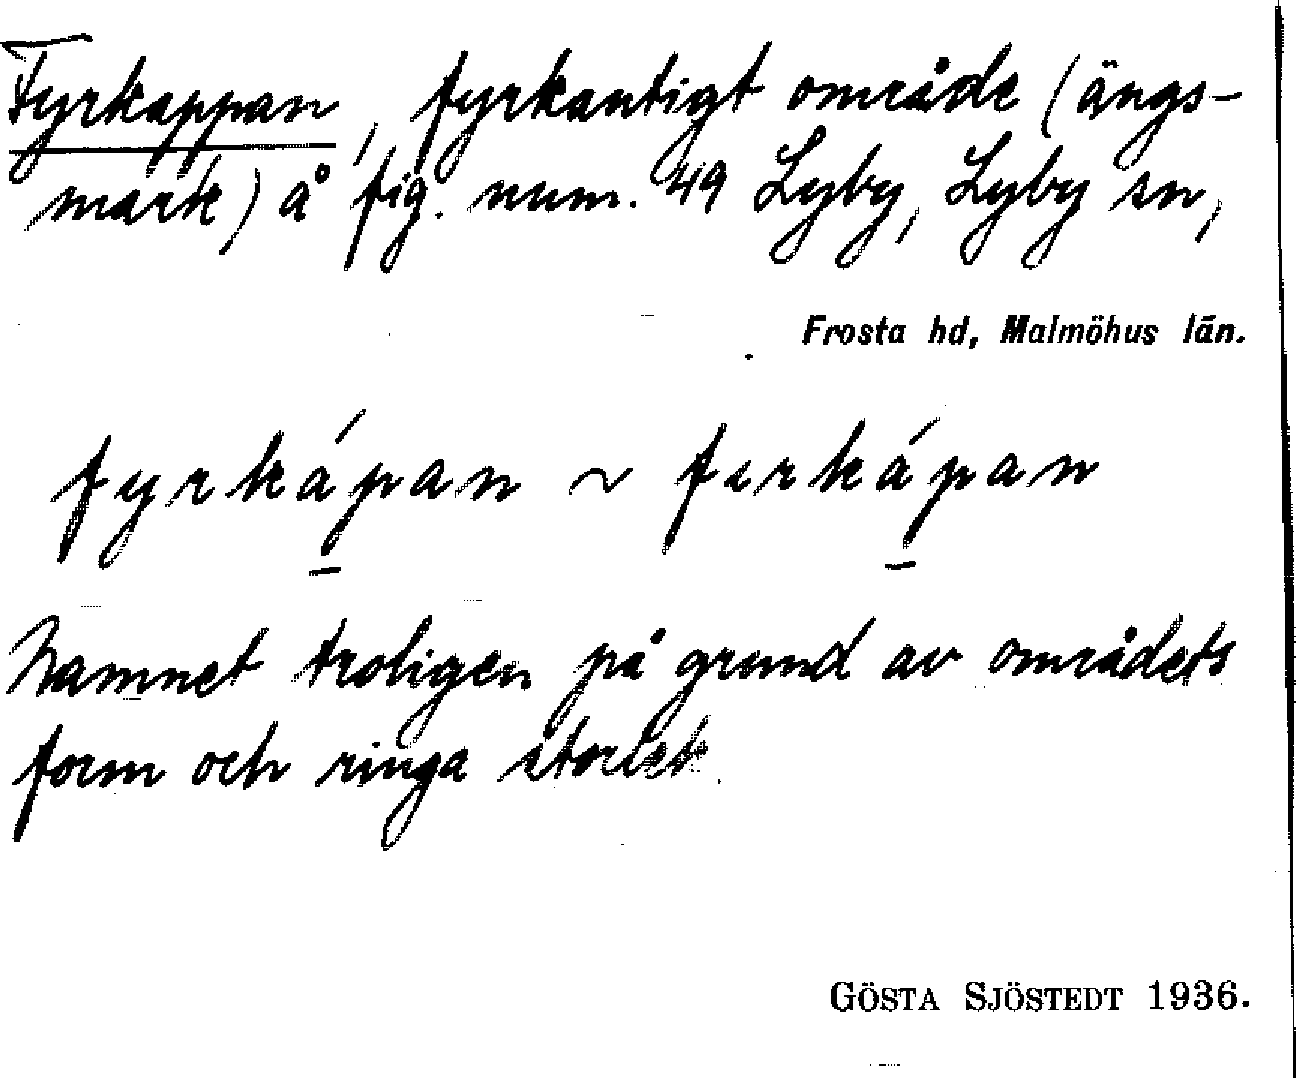 Fyrkappan, fyrkantigt område (ängs-
mark) å fig. num. 49 Lyby, Lyby sn,
Frosta hd, Malmöhus län.
fyrkápan ~ firkápan
Namnet troligen på grund av områdets
form och ringa storlek.
GÖSTA SJÖSTEDT 1936.